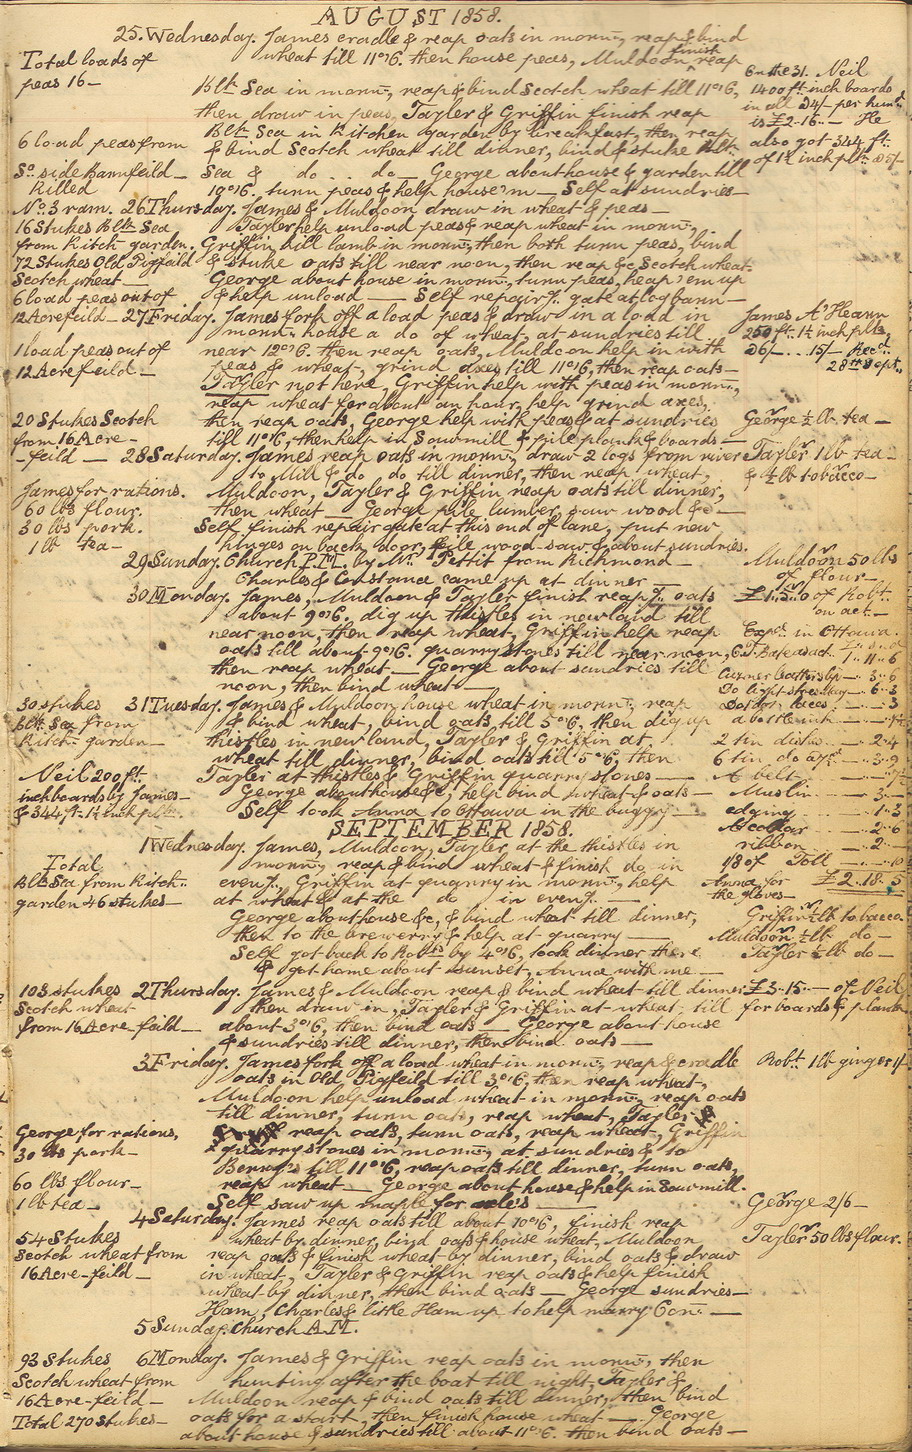 AUGUST 1858.
25. Wednesday. James cradle & reap oats in mornḡ, reap & bind
wheat till 11 o'c. then house peas, Muldoon finish reap
Total loads of
peas 16 —
Blk Sea in mornḡ, reap & bind Scotch wheat till 11 o'c,
then draw in peas, Tayler & Griffin finish reap
Blk Sea in Kitchen garden by breakfast, then reap
6 load peas from
& bind Scotch wheat till dinner, bind & stuke Blk
So. side Barnfeild —
Sea & do .. do — George about house & garden till
Killed
10 o'c. turn peas & help house 'm — Self at sundries —
On the 31. Neil
1400 ft. inch boards
in all 24/- per hund
is £2.16. — He
also got 344 ft.
of 1½ inch plk. 25/-
No. 3 ram. 26 Thursday. James & Muldoon draw in wheat & peas —
16 Stukes Blk Sea
Tayler help unload peas & reap wheat in mornḡ,
from Kitch. garden.
Griffin kill lamb in mornḡ, then both turn peas, bind
72 Stukes Old Pigfeild
& stuke oats till near noon, then reap &c Scotch wheat
Scotch wheat —
George about house in mornḡ, turn peas, heap 'em up
6 load peas out of
& help unload — Self repairg. gate at log barn —
12 Acre feild — 27 Friday. James fork off a load peas & draw in a load in
mornḡ. house a do of wheat, at sundries till
1 load peas out of
near 12 o'c. then reap oats, Muldoon help in with
12 Acre feild —
peas & wheat, grind axes till 11 o'c, then reap oats —
Tayler not here, Griffin help with peas in mornḡ,
reap wheat for about an hour, help grind axes,
James A'Hearn
250 ft. 1½ inch plk.
26/- ... 15/- Recd.
28th Sept.
20 Stukes Scotch
then reap oats, George help with peas & at sundries
George ½ lb. tea —
from 16 Acre —
till 11 o'c, then help in Sawmill & pile plank & boards —
— feild — 28 Saturday. James reap oats in mornḡ, draw 2 logs from river
Tayler 1 lb tea —
to Mill & do do till dinner, then reap wheat,
& ½ lb tobacco —
James for rations.
Muldoon, Tayler & Griffin reap oats till dinner,
60 lbs flour.
then wheat — George pile lumber, saw wood &c —
30 lbs pork.
Self finish repair gate at this end of lane, put new
1 lb tea —
hinges on back door, file wood-saw & about sundries.
29 Sunday. Church P.M. by Mr. Pettit from Richmond —
Charles & Constance came up at dinner —
Muldoon 50 lbs
of flour —
30 Monday. James, Muldoon & Tayler finish reapg. oats
£1..5..0 of Robt.
about 9 o'c. dig up thistles in new land till
on act. —
near noon, then reap wheat, Griffin help reap
Exps. in Ottawa.
oats till about 9 o'c. quarry stones till near noon,
then reap wheat — George about sundries till
noon, then bind wheat —
30 stukes 31 Tuesday. James & Muldoon house wheat in mornḡ, reap
Blk Sea from
& bind wheat, bind oats till 5 o'c, then dig up
Kitch. garden —
thistles in new land, Tayler & Griffin at
wheat till dinner, bind oats till 5 o'c, then
Neil 200 ft.
Tayler at thistles & Griffin quarry stones —
inch boards by James —
George about house &c, help bind wheat & oats —
& 344 ft. 1½ inch plk. —
Self took Anna to Ottawa in the buggy —
1 .. 11 .. 6
3 .. 6
6 .. 3
laces — .. 3
a bottle ink
2 tin dishes — .. 2.4
6 tin do — .. 3..9
A belt
Muslin — .. 3..—
edging — .. 1..3
A collar — .. 2..6
ribbon — .. 2..—
1/8 of Toll — .. — .. 10
Anna for £2..18..5
the gloves —
SEPTEMBER 1858.
1 Wednesday. James, Muldoon, Tayler at the thistles in
Total
mornḡ, reap & bind wheat & finish do in
Blk Sea from Kitch.
eveng., Griffin at quarry in mornḡ, help
garden 46 stukes —
at wheat & at the do in eveng. —
George about house &c, & bind wheat till dinner,
Griffin ½ lb tobacco
then to the brewery & help at quarry —
Muldoon ½ lb do —
Self got back to Robts by 4 o'c, took dinner there
Tayler ½ lb do —
& got home about sunset, Anna with me —
103 stukes 2 Thursday. James & Muldoon reap & bind wheat till dinner
£3..15..— of Neil
Scotch wheat
then draw in, Tayler & Griffin at wheat till
for boards & plank
from 16 Acre feild —
about 3 o'c, then bind oats — George about house
& sundries till dinner, then bind oats —
3 Friday. James fork off a load wheat in mornḡ, reap & cradle
Robt. 1 lb ginger 1/-
oats in Old Pigfeild till 3 o'c, then reap wheat,
Muldoon help unload wheat in mornḡ, reap oats
till dinner, turn oats, reap wheat, Tayler
George for rations,
reap oats, turn oats, reap wheat, Griffin
30 lbs pork —
quarry stones in mornḡ, at sundries & to
Berry's till 11 o'c, reap oats till dinner, turn oats,
60 lbs flour —
reap wheat — George about house & help in Sawmill.
1 lb tea —
Self saw up maple for axle's —
George 2/6 —
4 Saturday. James reap oats till about 10 o'c, finish reap
54 Stukes
wheat by dinner, bind oats & house wheat, Muldoon
Tayler 50 lbs flour.
Scotch wheat from
reap oats & finish wheat by dinner, bind oats & draw
16 Acre-feild —
in wheat, Tayler & Griffin reap oats & help finish
wheat by dinner, then bind oats — George sundries —
Ham, Charles & little Ham up to help marry Con. —
5 Sunday. Church A.M.
93 Stukes 6 Monday. James & Griffin reap oats in mornḡ, then
Scotch wheat from
hunting after the boat till night, Tayler &
16 Acre-feild —
Muldoon reap & bind oats till dinner, then bind
Total 270 stukes —
oats for a start, then finish house wheat — George
about house & sundries till about 11 o'c. then bind oats —